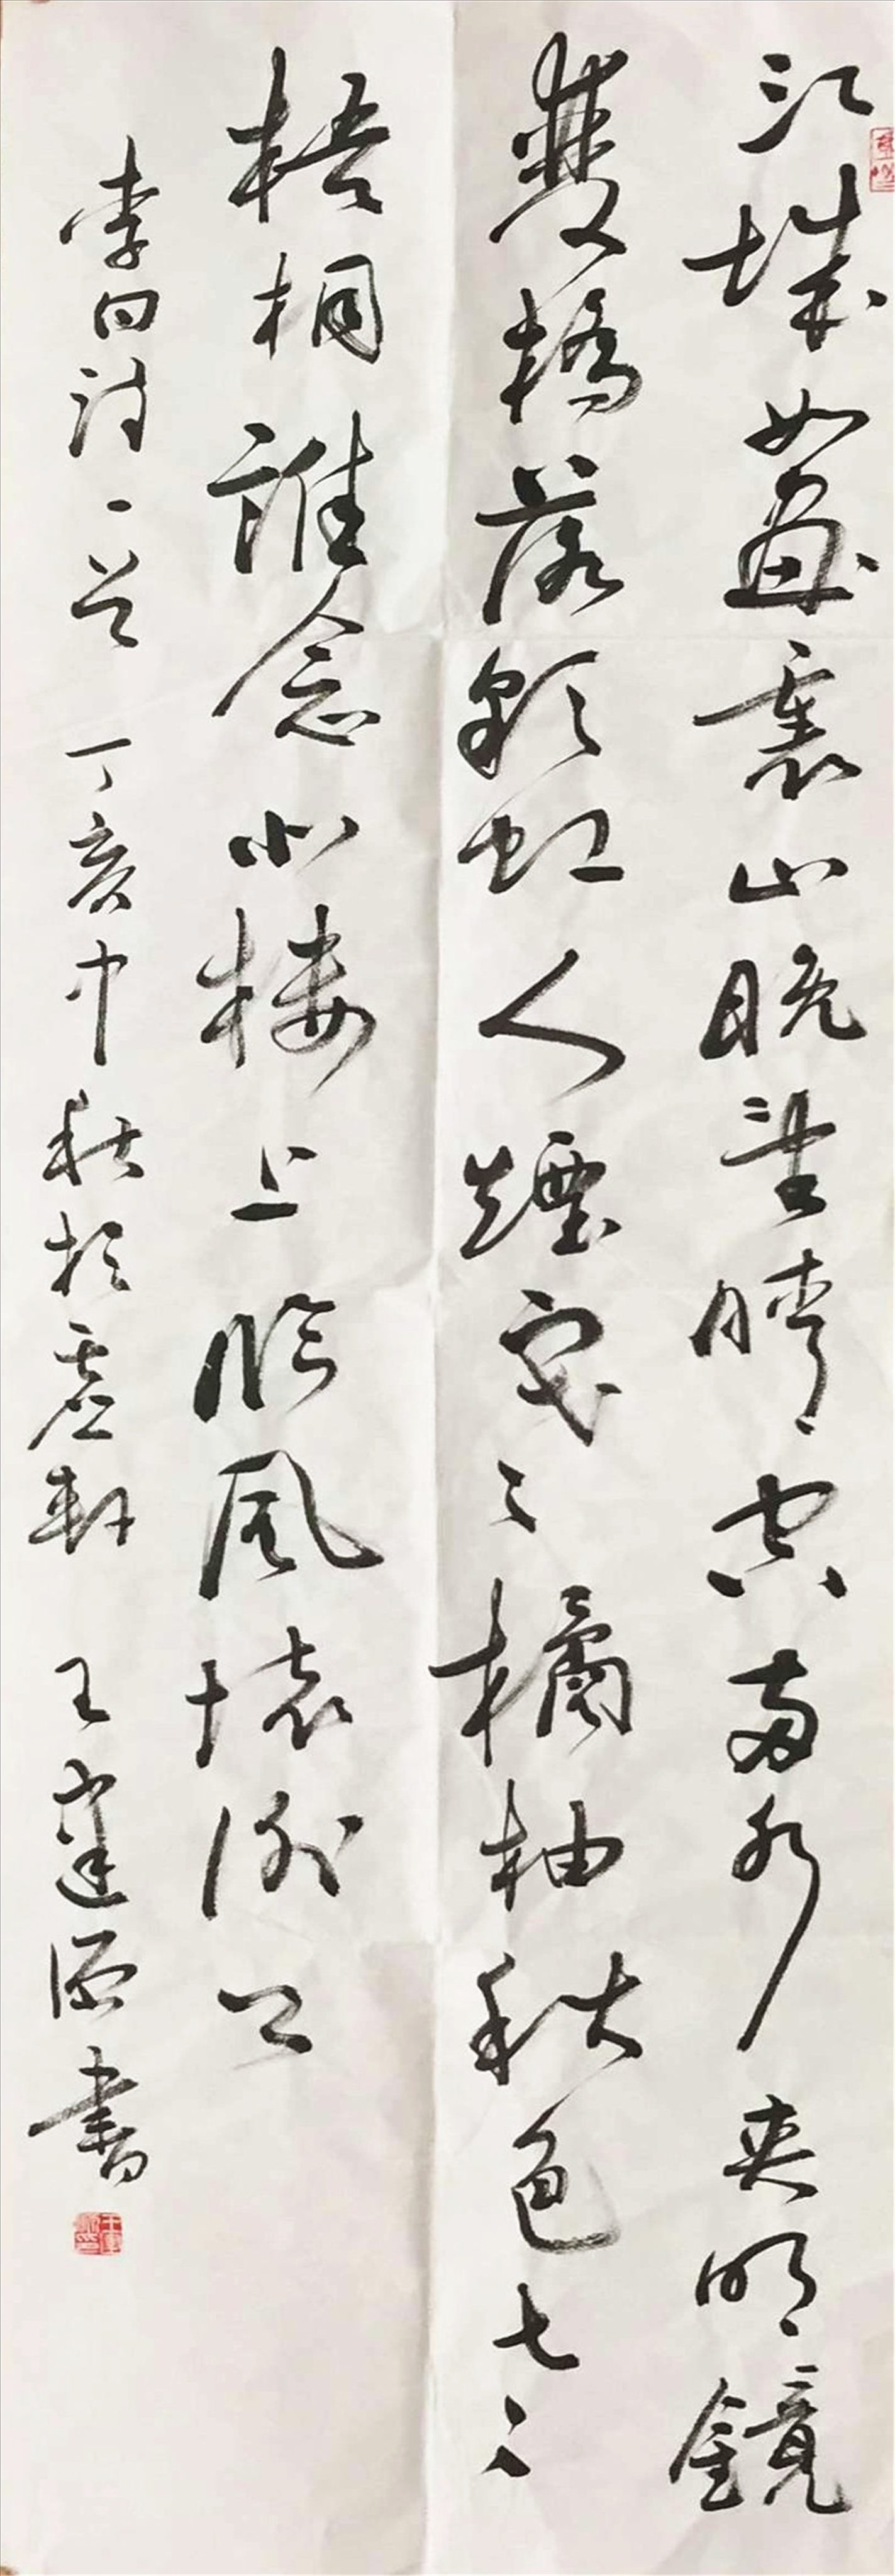 江城如畫裏山晚望晴空兩水夾明鏡
雙橋落彩虹人煙寒橘柚秋色老
梧桐誰念北樓上臨風懷謝公
李白詩一首 丁亥中秋於虛軒 王書